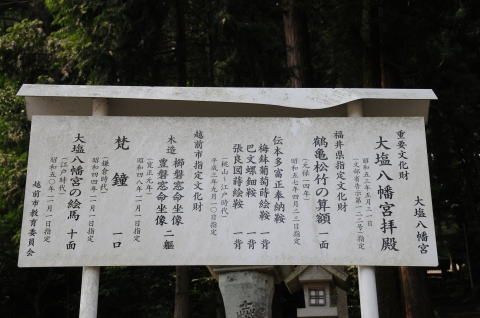 大塩八幡宮
重要文化財
大塩八幡宮拝殿
昭和五三年五月三一日
(文部省告示第一二二号)指定
福井県指定文化財
鶴亀松竹の算額 一面
(元禄一四年) 昭和五七年四月二三日指定
伝本多富正奉納鞍
梅鉢葡萄蒔絵鞍 一背
巴文螺鈿鞍 一背
張良図蒔絵鞍 一背
(桃山~江戸時代)
平成三年九月一〇日指定
越前市指定文化財
木造 櫛磐窓命坐像
豊磐窓命坐像 二躯
(寛正九年) 昭和四八年一一月一日指定
梵鐘 一口
(鎌倉時代) 昭和四四年一二月一日指定
大塩八幡宮の絵馬 十面
(江戸時代) 昭和五〇年一一月一日指定
越前市教育委員会